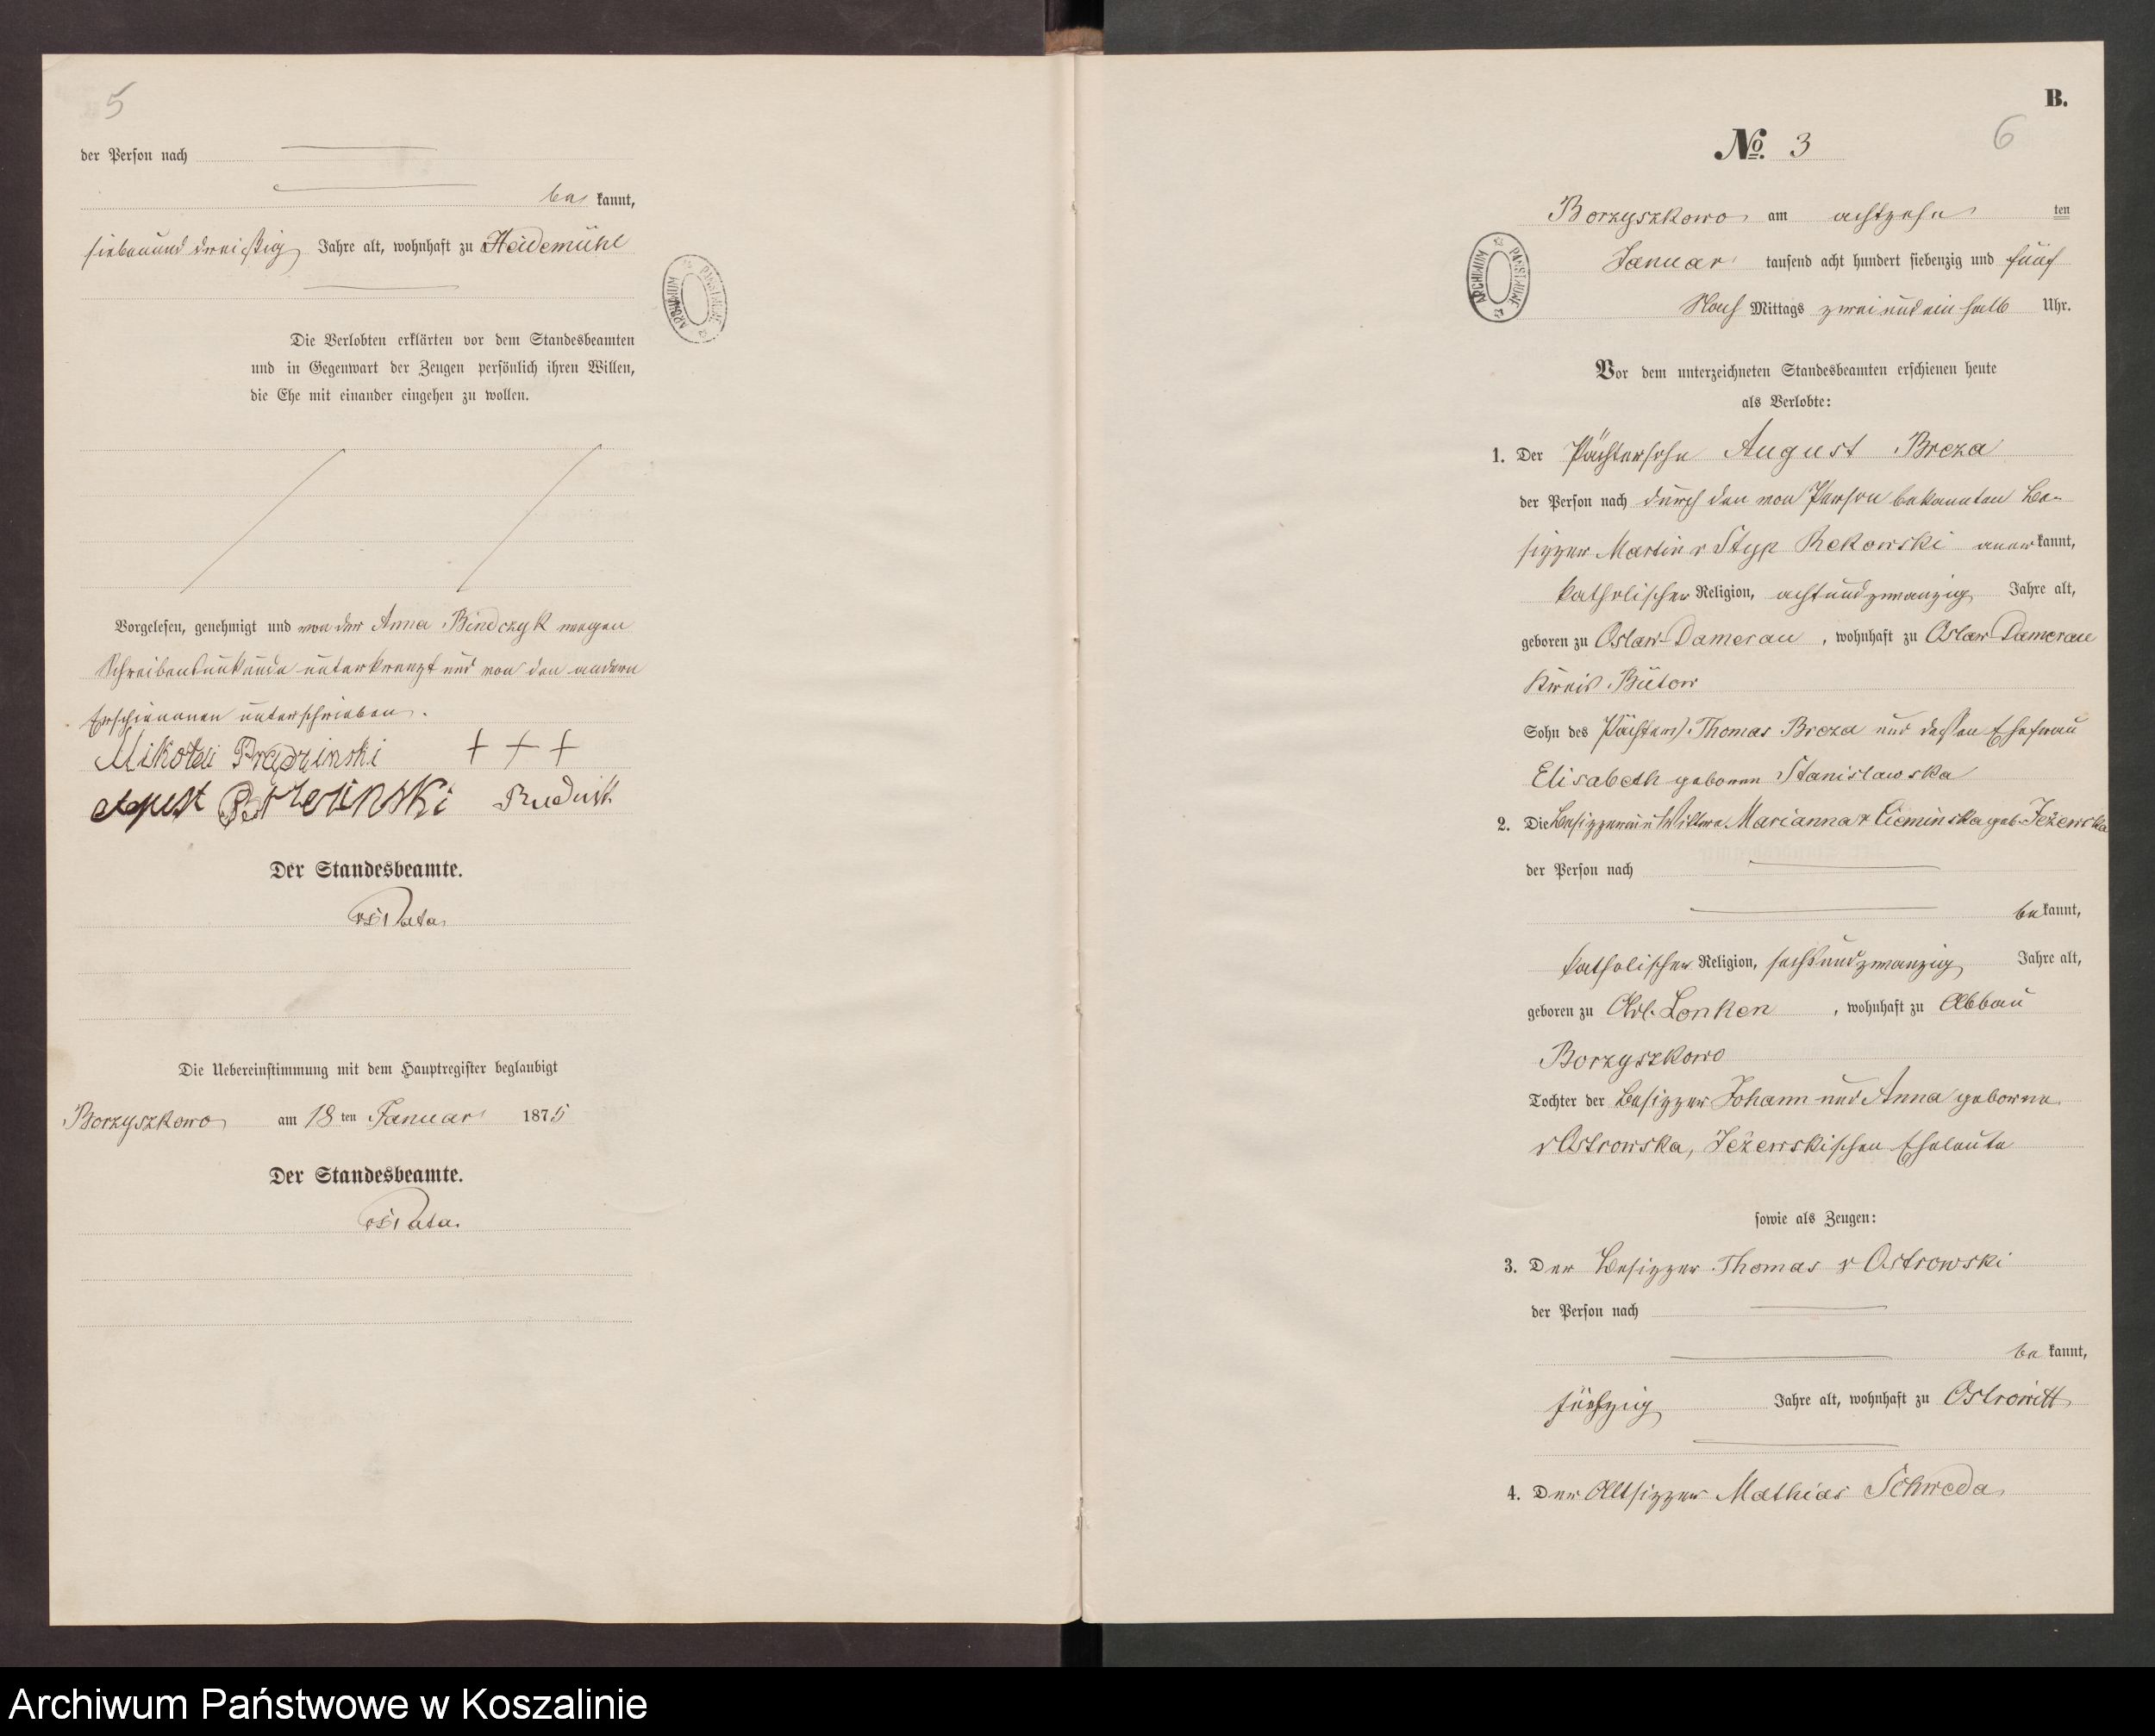 5
der Person nach
be kannt,
siebenund dreißig Jahre alt, wohnhaft zu Heidemühl
ARCHIWUM PAŃSTWOWE
Die Verlobten erklärten vor dem Standesbeamten
und in Gegenwart der Zeugen persönlich ihren Willen,
die Ehe mit einander eingehen zu wollen.
Vorgelesen, genehmigt und von der Anna Bindczyk wegen
Schreibensunkunde unterkreuzt und von den andern
Erschienenen unterschrieben.
+ + +
Der Standesbeamte.
Die Uebereinstimmung mit dem Hauptregister beglaubigt
Borzyszkowo am 18 ten Januar 1875
Der Standesbeamte.
B.
6
No. 3
Borzyszkowo am achtzehn ten
Januar tausend acht hundert siebenzig und fünf
Nach Mittags zwei und ein halb Uhr.
ARCHIWUM PAŃSTWOWE
Vor dem unterzeichneten Standesbeamten erschienen heute
als Verlobte:
1. Der Pächtersohn August Breza
der Person nach durch den von Person bekannten Be-
sizzer Martin v Styp Rekowski aner kannt,
katholischer Religion, achtundzwanzig Jahre alt,
geboren zu Oslaw-Damerau, wohnhaft zu Oslaw Damerau
Kreis Bütow
Sohn des Pächters Thomas Breza und dessen Ehefrau
Elisabeth geboren Stanislawska
2. Die Besizzerin Wittwe Marianna v Cieminska geb. Jeżewska
der Person nach
be kannt,
katholischer Religion, sechsundzwanzig Jahre alt,
geboren zu Adl. Lonken, wohnhaft zu Abbau
Borzyszkowo
Tochter der Besizzer Johann und Anna geborne
v Ostrowska, Jeżewskischen Eheleute
sowie als Zeugen:
3. Der Besizzer Thomas v Ostrowski
der Person nach
be kannt,
fünfzig Jahre alt, wohnhaft zu Ostrowitt
4. Der Altsizzer Mathias Schweda
Archiwum Państwowe w Koszalinie